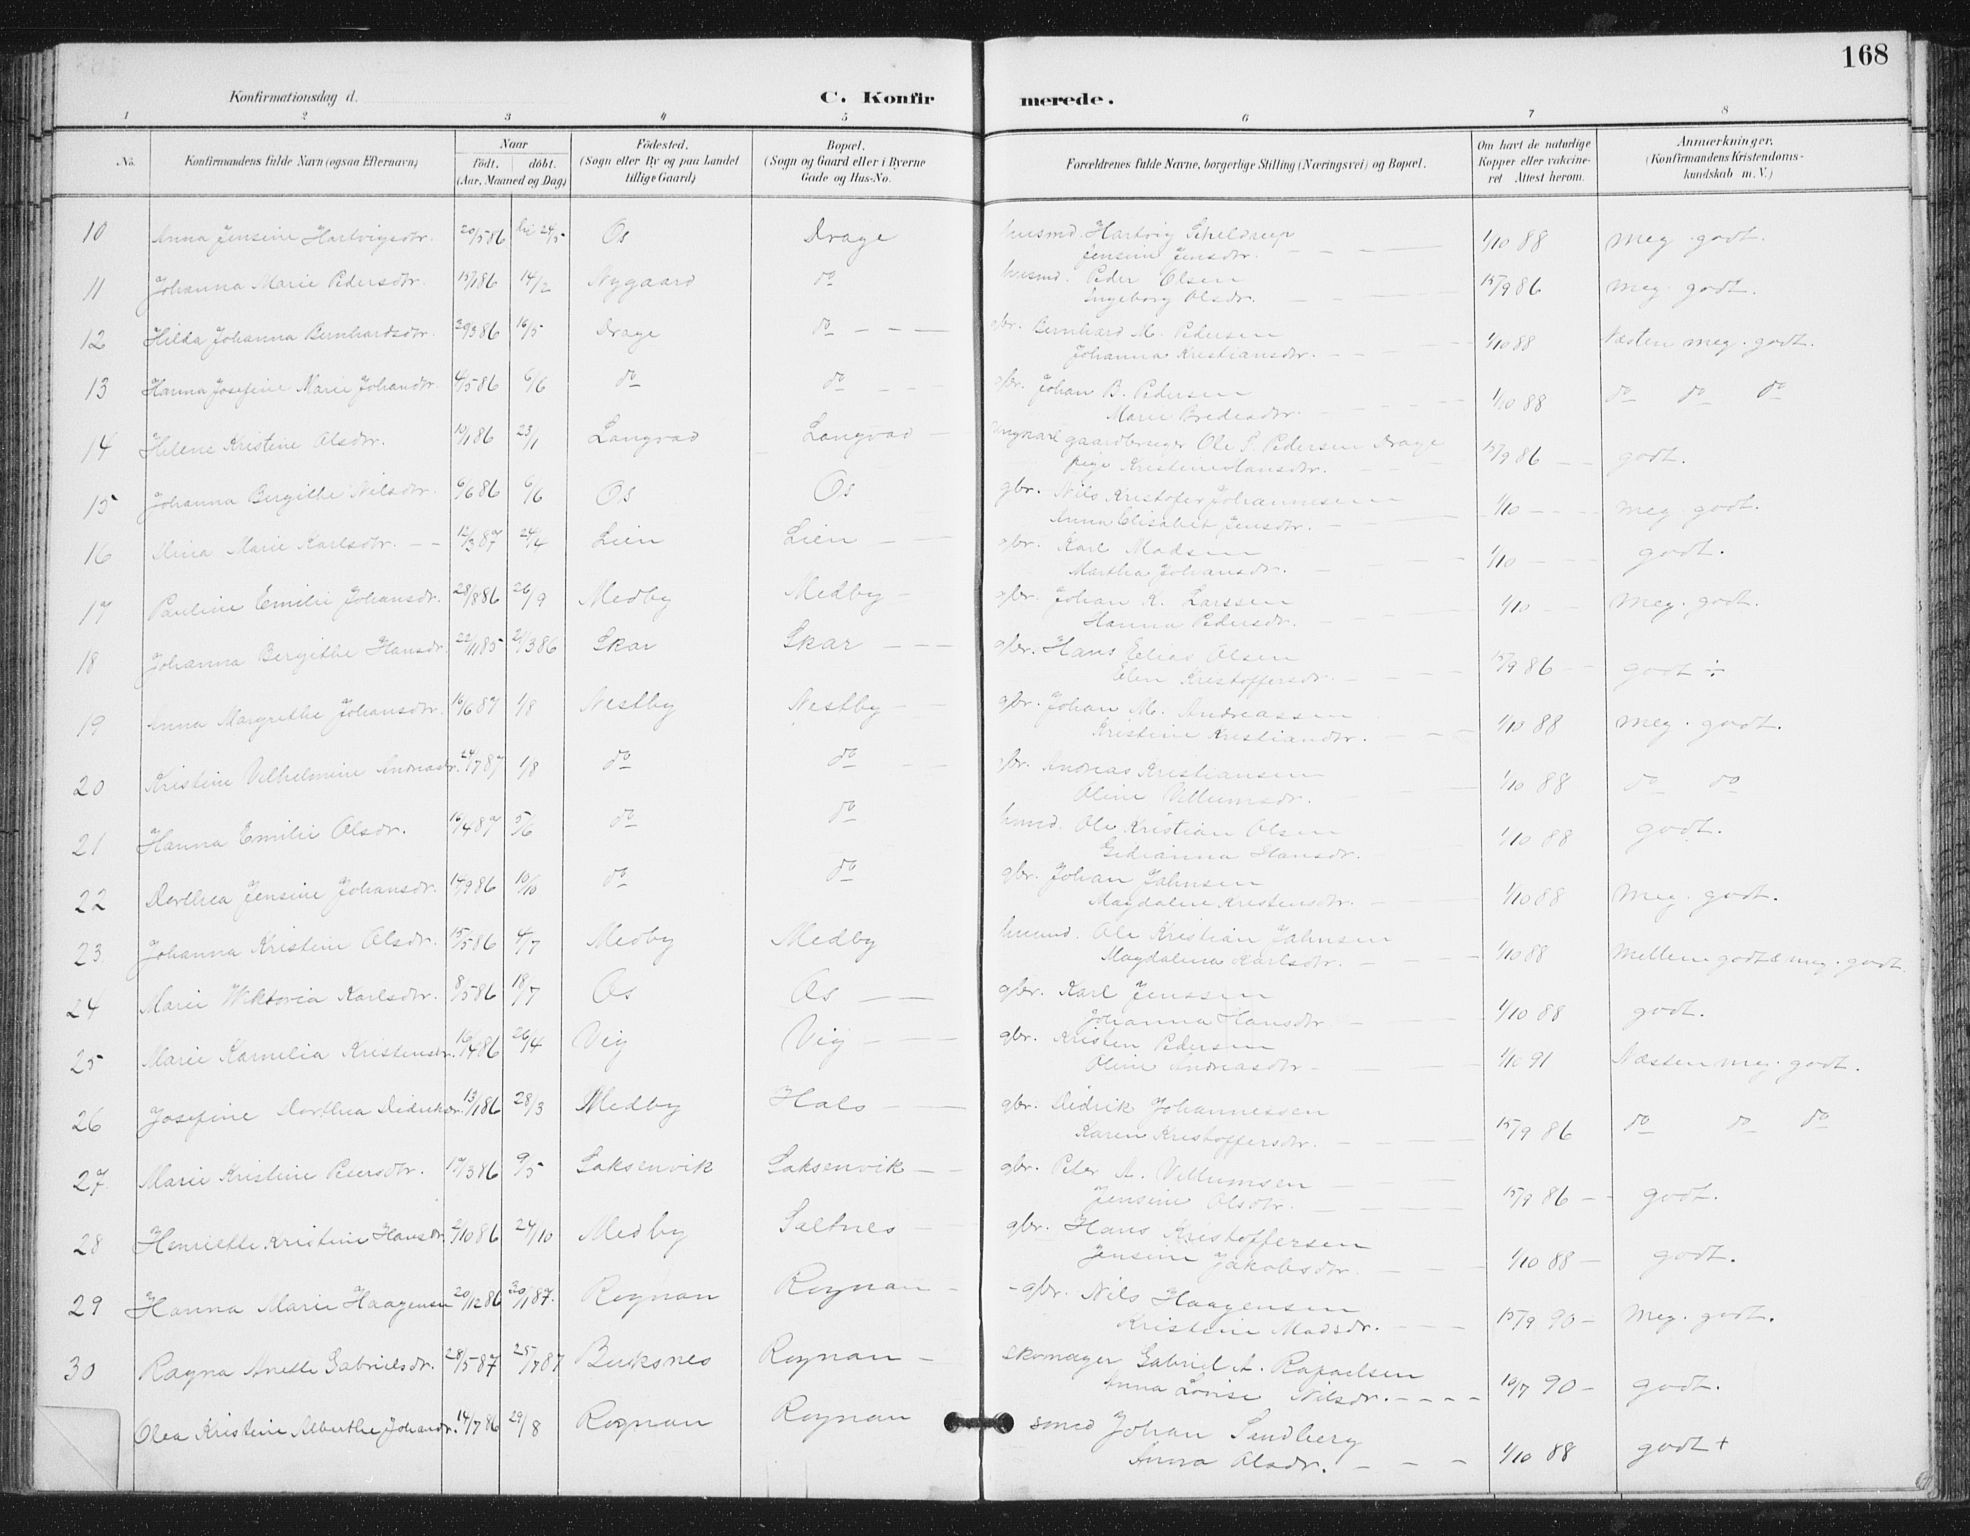 168
Konfirmationsdag d.
C. Konfirmerede.
1 2 3 4 5 6 7 8
No. Konfirmandens fulde Navn (ogsaa Efternavn) Naar født. døbt. (Aar, Maaned og Dag) Fødested. (Sogn eller By og paa Landet tillige Gaard) Bopæl. (Sogn og Gaard eller i Byerne Gade og Hus-No. Forældrenes fulde Navne, borgerlige Stilling (Næringsvei) og Bopæl. Om havt de naturlige Kopper eller vakcineret Attest herom. Anmærkninger. (Konfirmandens Kristendomskundskab m. V.)
10 Anna Jensine Hartvigsdtr. 20/5 86 24/5 Os Drage husmd. Hartvig Scheldrup 1/10 88 Meg. godt.
Jensine Jensdtr.
11 Johanna Marie Pedersdtr. 14/2 Nygaard do husmd. Peder Olsen 15/9 86 meg. godt.
Ingeborg Olsdr.
12 Hilda Johanna Bernhardsdtr. 29/3 86 16/5 Drage do gbr. Bernhard M. Pedersen 1/10 88 Næsten meg. godt.
Johanna Kristiansdr.
13 Hanna Josefine Marie Johansdtr. 4/5 86 6/6 do do gbr. Johan B. Pedersen 1/10 88 do do do
Marie Bredesdtr.
14 Helene Kristine Olsdtr. 19/1 86 23/1 Langvad Langvad Ungkarl gaardbruger Ole P. Pedersen Drage 15/9 86 godt.
pige Kristine Hansdtr.
15 Johanna Bergithe Nilsdtr. 6/6 86 6/6 Os Os gbr. Nils Kristofer Johannesen 1/10 meg. godt.
Anna Elisabet Jensdtr.
16 Marie Karlsdtr. 12/3 87 24/4 Lien Lien gbr. Karl Madsen 1/10 godt.
Martha Johansdr.
17 Pauline Emilie Johansdr. 28/8 86 26/9 Medby Medby gbr. Johan K. Larssen 1/10 Meg. godt.
Hanna Pedersdr.
18 Johanna Bergithe Hansdr. 22/11 85 21/3 86 Skar Skar gbr. Hans Elias Olsen 15/9 86 godt ÷
Elen Kristoffersdr.
19 Anna Margrethe Johansdtr. 16/6 87 1/8 Nestby Nestby gbr. Johan M. Andreassen 1/10 88 meg. godt.
Kristine Kristiandtr.
20 Kristine Vilhelmine Andreasdr. 24/7 87 1/8 do do gbr. Andreas Kristiansen 1/10 88 do do
Oline Villumsdr.
21 Hanna Emilie Olsdr. 16/4 87 5/6 do do husmd. Ole Kristian Olsen 1/10 88 godt.
Gidianna Hansdr.
22 Dorthea Jensine Johansdr. 14/9 86 10/10 do do gbr. Johan Jahnsen 1/10 88 Meg. godt.
Magdalene Kristensdtr.
23 Johanna Kristine Olsdr. 15/5 86 4/7 Medby Medby husmd. Ole Kristian Jahnsen 1/10 88 Mellem godt & meg. godt
Magdalena Karlsdtr.
24 Marie Viktoria Karlsdtr. 8/5 86 18/7 Os Os gbr. Karl Jenssen 1/10 88 godt.
Johanna Hansdtr
25 Marie Kornelia Kristensdtr. 16/4 86 26/4 Vig Vig gbr. Kristen Pedersen 1/10 91 Næsten meg. godt.
Oline Andreasdtr
26 Josefine Dorthea Didriksdr. 13/1 86 28/3 Medby Hals gbr. Didrik Johannessen 15/9 86 do do do
Karen Kristoffersdtr.
27 Marie Kristine Peersdtr. 17/3 86 9/5 Saksenvik Saksenvik gbr. Peter A. Villumsen 15/9 86 godt.
Jensine Olsdtr.
28 Henriette Kristine Hansdr. 2/10 86 24/10 Medby Saltnes gbr. Hans Kristoffersen 1/10 88 godt.
Jensine Jakobsdtr.
29 Hanna Marie Haagensen 20/12 86 30/1 87. Rognan Rognan gbr. Nils Haagensen 15/9 90 Meg. godt.
Kristine Madsdr.
30 Ragna Anette Gabrielsdr. 28/5 87 25/7 87 Buksnes Rognan skomager Gabriel A. Rapaelsen 10/7 90 godt.
Anna Lovise Nilsdr.
Olea Kristine Alberthe Johansdr. 14/7 86 29/8 Rognan Rognan smed Johan Sundberg 1/10 88 godt +
Anna Olsdr.